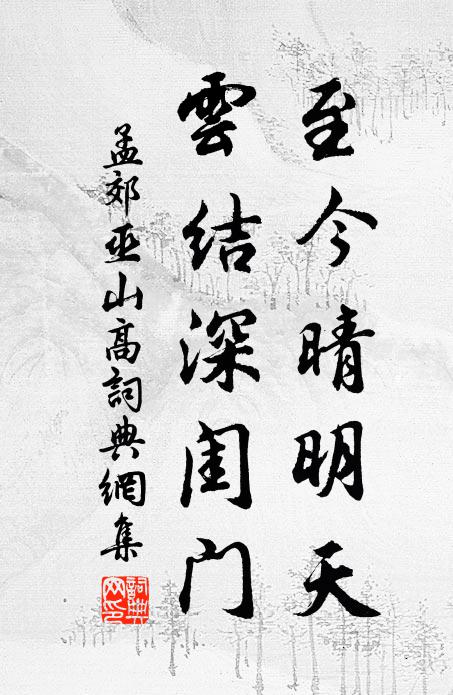 至今晴明天
雲結深闺门
孟郊巫山高詞典網集
詞典网印